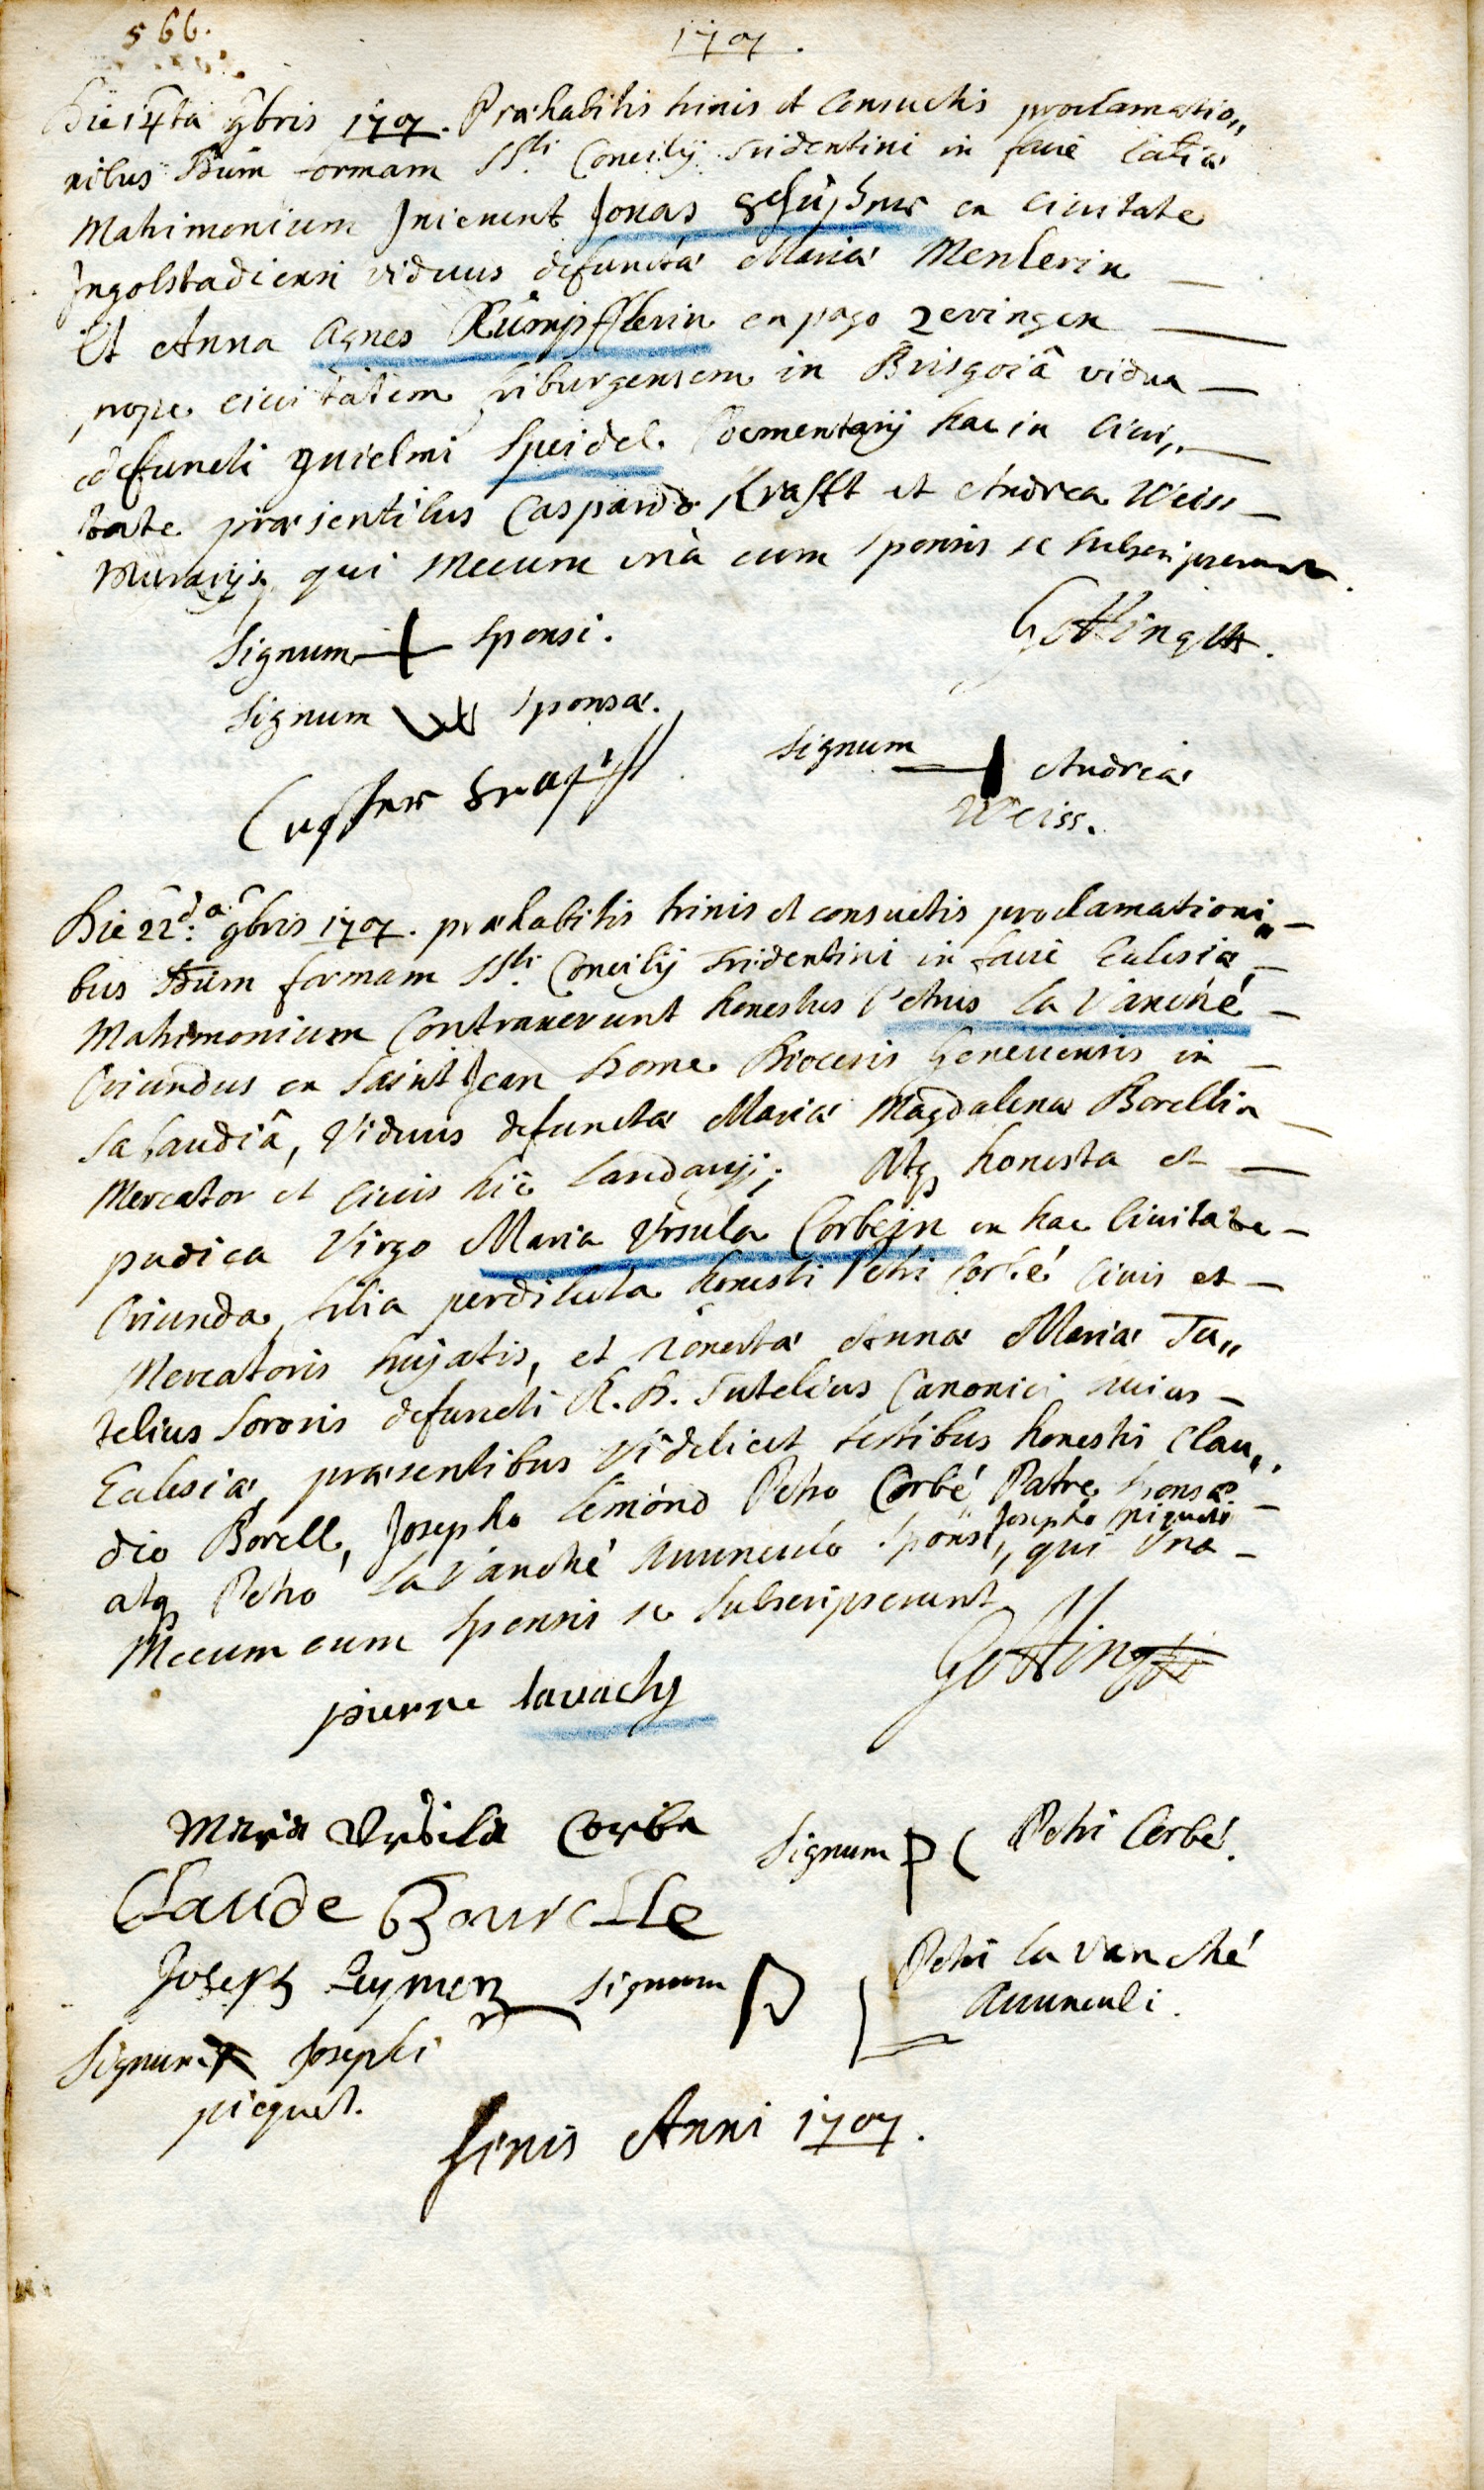 566.
1707.
Die 14ta 9bris 1707. Præhabitis trinis et Consuetis proclamatio„
nibus secundum formam SSti Concilij Tridentini in facie Eccliæ
Matrimonium Inierunt Jonas ex Civitate
Ingolstadiensi viduus defunctæ Mariæ Menlerin
Et Anna Agnes Rümpfflerin ex pago Zeringen
prope civitatem friburgensem in Brisgoiâ vidua
defuncti guielmi Speidel Cæmentarij hac in Civi„
tate præsentibus Casparo Krafft et Andrea Weiss
Murarijs, qui Mecum unà cum Sponsis se subscripserunt.
Signum + Sponsi.
Gotting
Signum Sponsæ.
Casper Krafft
Signum Andreæ
Weiss.
Die 22da 9bris 1707. præhabitis trinis et consuetis proclamationi„
bus secundum formam SSti Concilij Tridentini in facie Eclesiæ
Matrimonium Contraxerunt honestus Petrus la Vanché
Oriundus ex Saint Jean home Diocesis Genevensis in
Sabaudiâ, Viduus defunctæ Mariæ Magdalenæ Borellin
Mercator et Civis hic Landavij; Atq honesta et
pudica Virgo Maria Ursula Corbejn ex hac Civitate
Oriunda, filia perdilecta honesti Petri Corbé Civis et
Mercatoris hujatis, et honestæ Annæ Mariæ Tu„
telius Sororis defuncti R. D. Tutelius Canonici huius
Eclesiæ, præsentibus Videlicet testibus honestis Clau„
dio Borell, Josepho Lemónd Petro Corbé Patre Sponsæ
Josepho piquet
atq Petro la Vanché Avunculo Sponsi, qui Una
Mecum cum Sponsis se Subscripserunt
Gotting
pierre lavachy
Maria Ursila Corbe
Signum P C Petri Corbé.
Claude Bourelle
Joseph Leymen
Signum P L Petri la vanché
Avunculi.
Signum + Josephi
piquet.
finis Anni 1707.